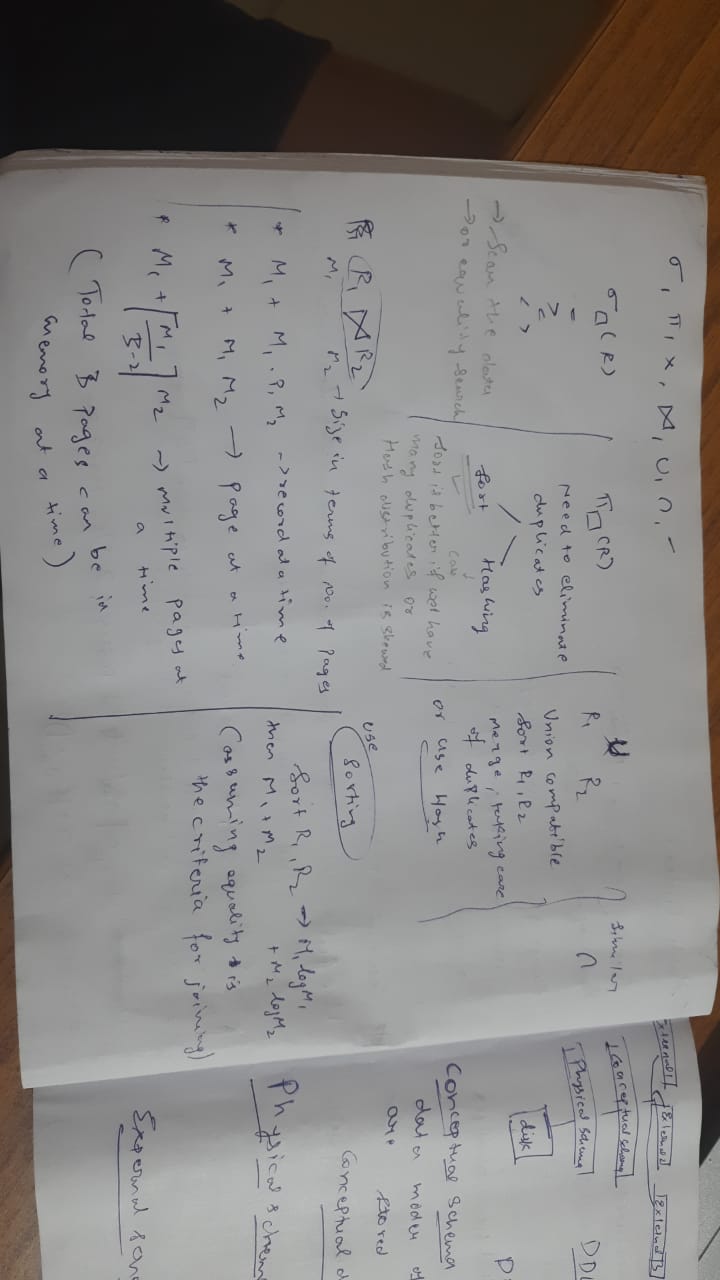 σ, π, ×, ⋈, ∪, ∩, −
σ□(R)
=
>
<
< >
→ Scan the data
→ or equality search
π□(R)
Need to eliminate
duplicates
Sort Hashing
✓
Sort is better if we have
many duplicates or
Hash distribution is skewed
∪
R₁ R₂
Union compatible
Sort R₁, R₂
merge, taking care
of duplicates
or use Hash
Similar
∩
R₁ ⋈ R₂
M₁ M₂ → Size in terms of No. of pages
* M₁ + M₁ . P₁ M₂ → record at a time
* M₁ + M₁ M₂ → page at a time
* M₁ + ⌈M₁ / B-2⌉ M₂ → Multiple pages at
a time
(Total B pages can be in
memory at a time)
use
Sorting
Sort R₁, R₂ → M₁ log M₁
+ M₂ log M₂
then M₁ + M₂
(assuming equality is
the criteria for joining)
External 1 External 2 External 3
Conceptual schema
Physical schema
disk
DDL
Conceptual schema
data model of
are stored
Conceptual d
Physical schema
External schem